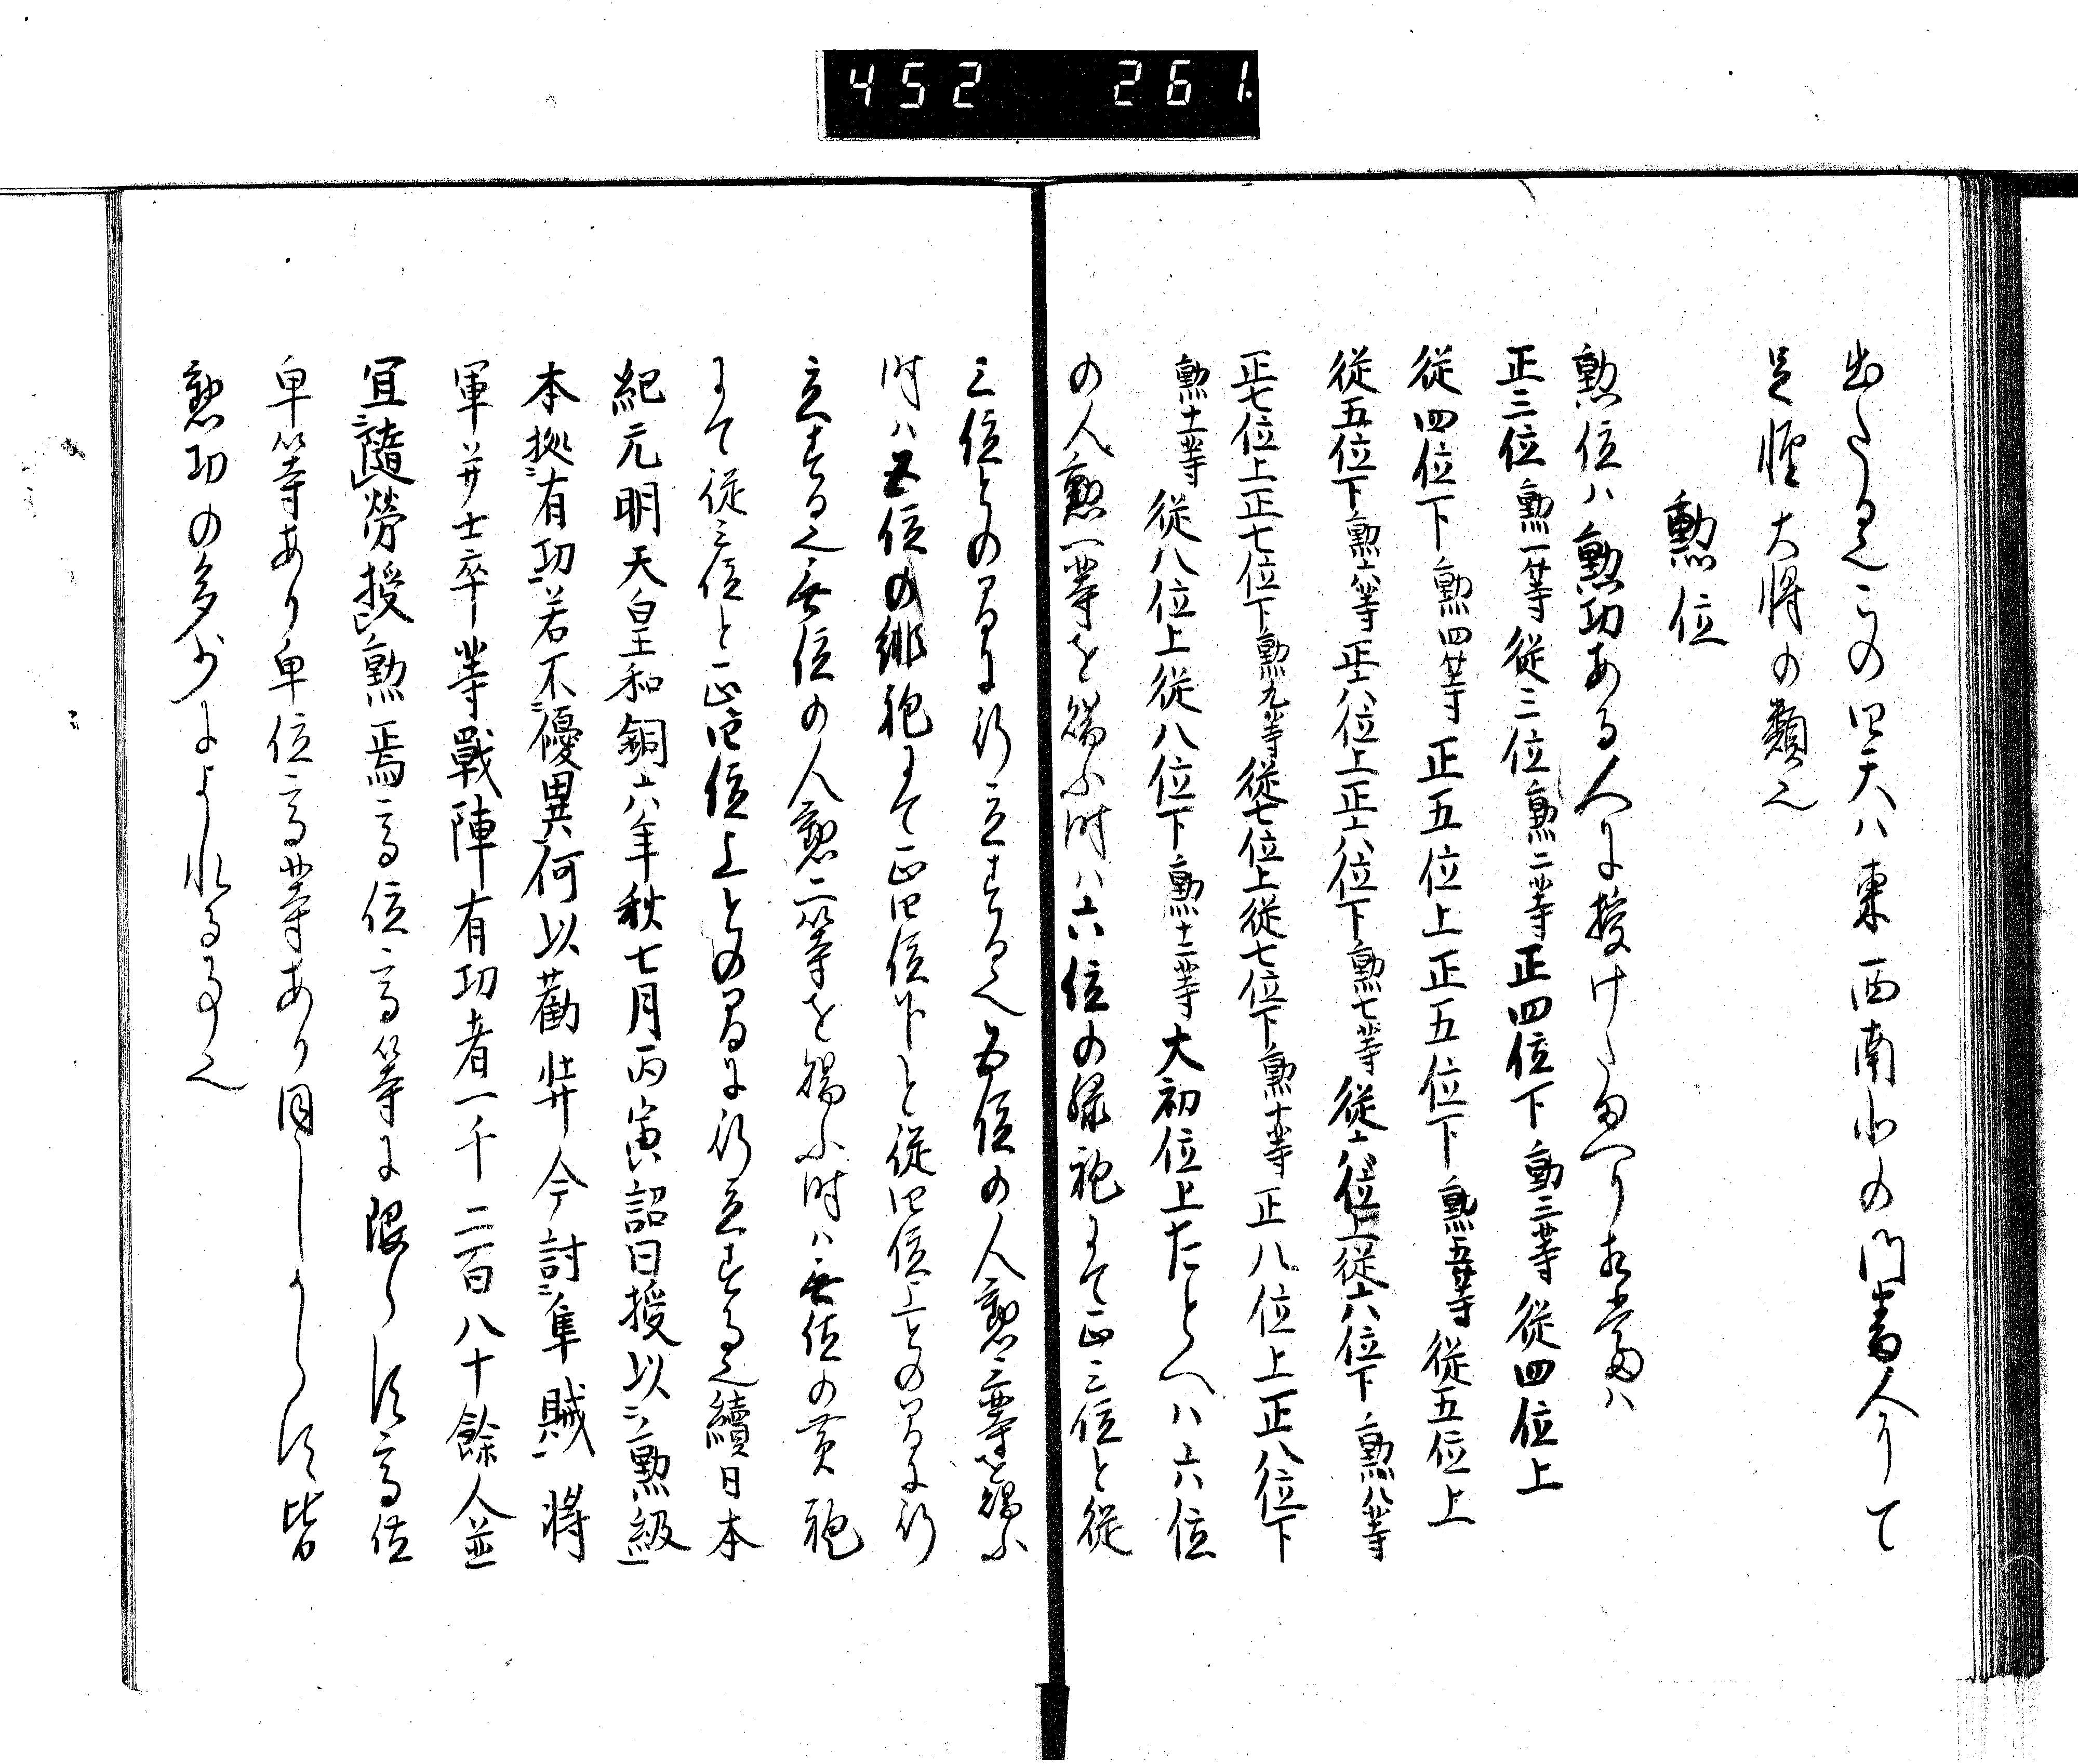 452 261
出たる也この四大ハ東西南北の門番人りて
足軽大将の類也
勲位
勲位ハ勲功ある人に授けたまへり相当ハ
正三位勲一等従三位勲二等正四位下勲三等従四位上
従四位下勲四等正五位上正五位下勲五等従五位上
従五位下勲六等正六位上正六位下勲七等従六位上従六位下勲八等
正七位上正七位下勲九等従七位上従七位下勲十等正八位上正八位下
勲十一等従八位上従八位下勲十二等大初位上たとへハ六位
の人勲一等を賜ふ時ハ六位の緑袍にて正三位と従
三位との間に列立する也五位の人勲三等賜ふ
時ハ五位の緋袍にて正四位下と従四位上との間に列
立する也無位の人勲二等を賜ふ時ハ無位の黄袍
にて従三位と正四位上との間に列立する也續日本
紀元明天皇和銅六年秋七月丙寅詔曰授以二勲級一
本拠レ有レ功若不二優異一何以勸奨今討二隼賊一將
軍并士卒等戰陣有功者一千二百八十餘人並
宜二隨レ勞授一レ勲焉高位高等に限らす高位
卑等あり卑位高等あり同しからす皆
勲功の多少によれる事也